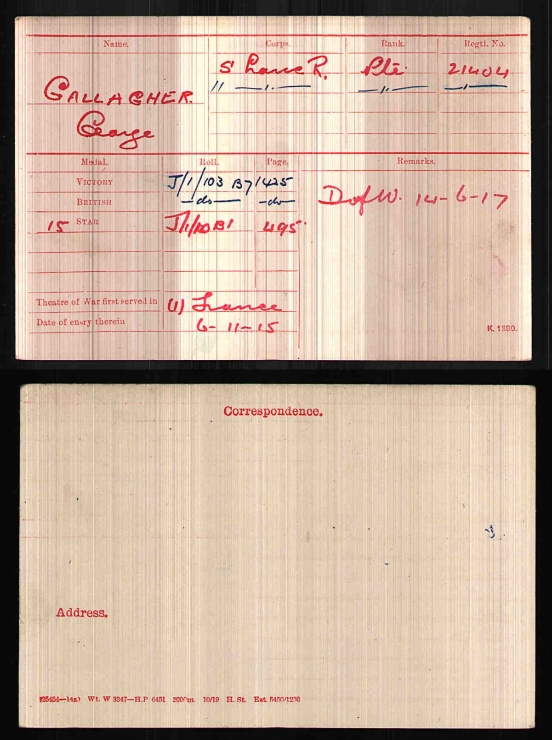 Name. Corps. Rank. Regtl. No.
GALLAGHER. S Lanc R. Pte. 21404
George " — " — — " — — " —
Medal. Roll. Page. Remarks.
VICTORY J/1/103 B7 1425
BRITISH —do— —do— D of W. 14-6-17
15 STAR 495
Theatre of War first served in (1) France
Date of entry therein 6-11-15
K. 1380.
Correspondence.
Address.
Wt. W 3347—H.P 6451 2000m. 10/19 H. St.